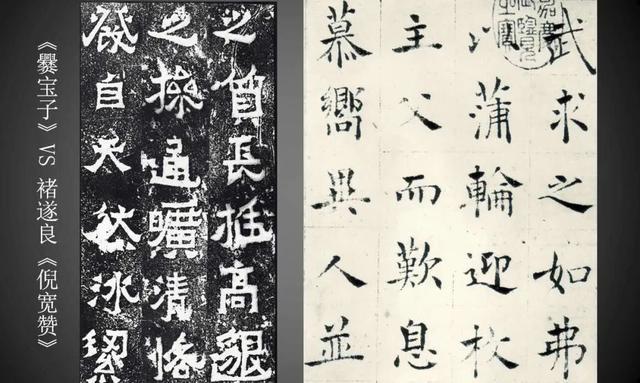 《爨宝子》VS 褚遂良《倪宽赞》
之質長挺高邈
之操通曠清恪
發自天然冰絜
武求之如弗
以蒲輪迎枚
主父而歎息
慕嚮異人並